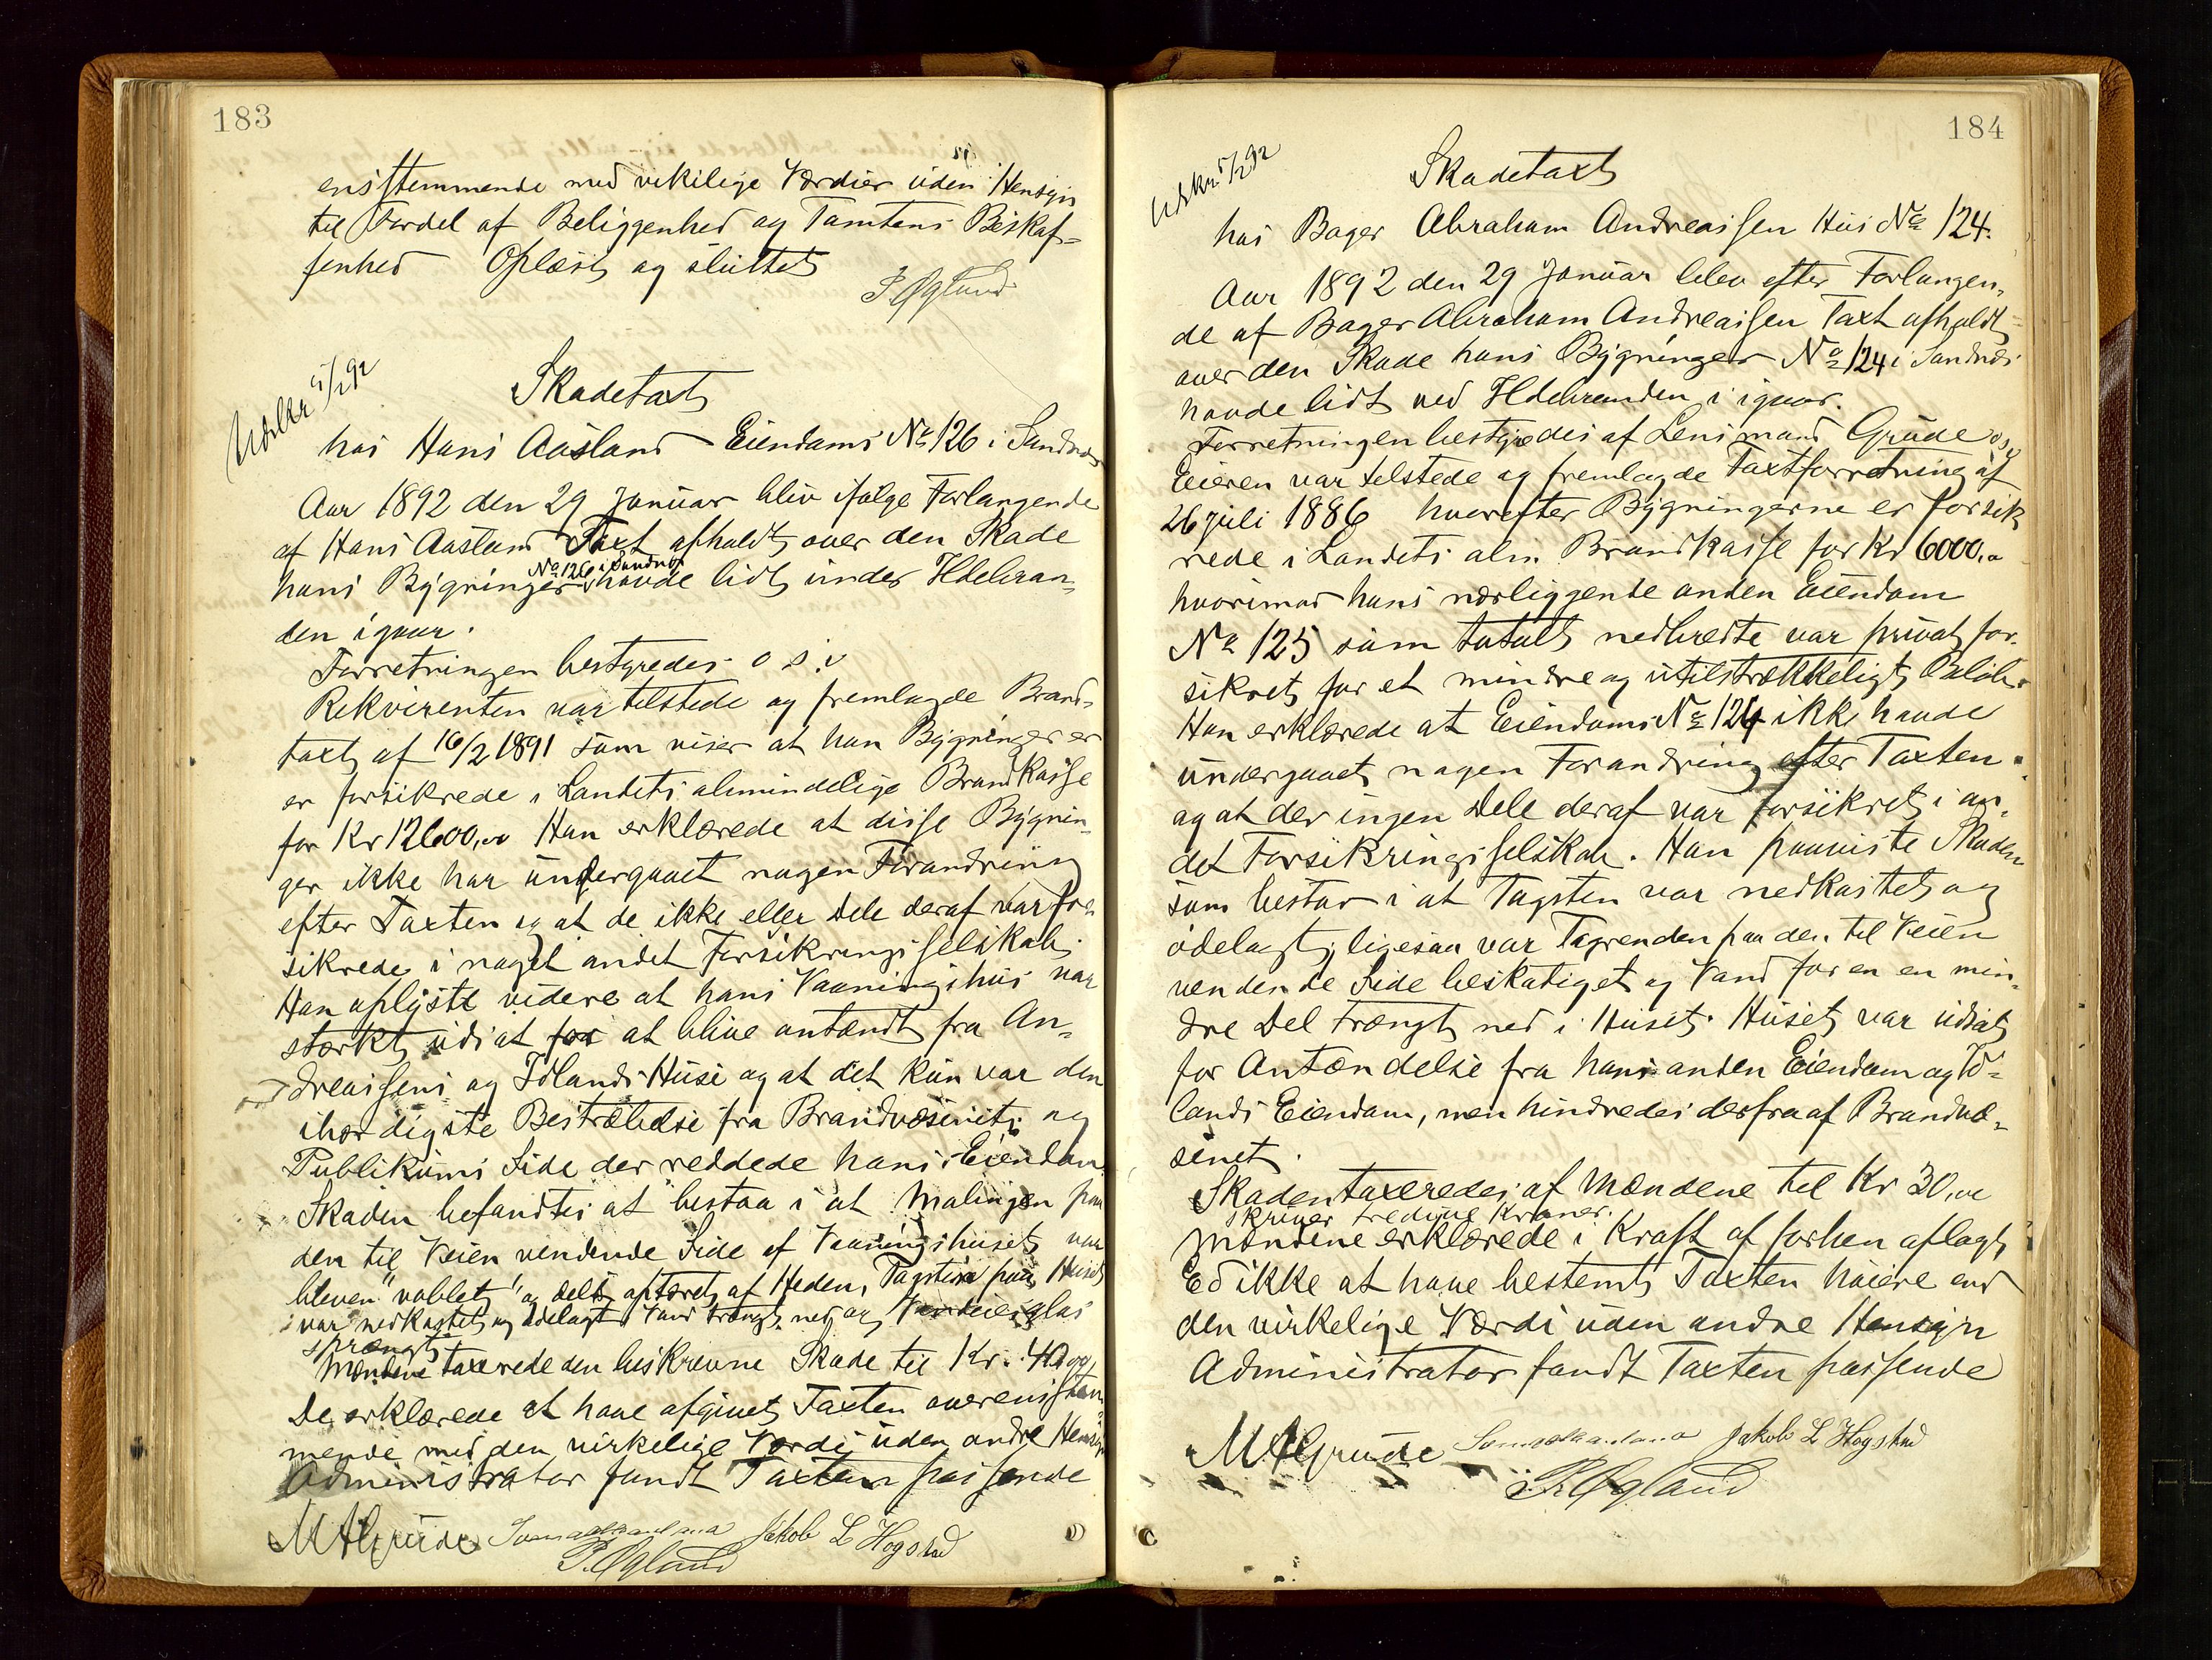 183
ensstemmende med virkilige Værdier uden Hensyn
til Fordel af Beliggenhed og Tomtens Beskaf-
fenhed Oplæst og sluttet
P. Øglænd
Udskr 5/2 92
Skadetaxt
hos Hans Aasland Eiendoms No 126 i Sandnæs
Aar 1892 den 29 Januar blev ifølge Forlangende
af Hans Aasland Taxt afholdt over den Skade
No 126 i Sandnæs
hans Bygninger havde lidt under Ildebran-
den igaar.
Forretningen bestyredes o s. v
Rekvirenten var tilstede og fremlagde Brand-
taxt af 16/2 1891 som viser at han Bygninger er
er forsikrede i Landets almindelige Brandkasse
for Kr 12600,00 Han erklærede at disse Bygnin-
ger ikke har undergaaet nogen Forandring
efter Taxten og at de ikke eller Dele deraf var for-
sikrede i noget andet Forsikringsselskab.
Han oplyste videre at hans Vaaningshus var
stærkt udsat for at blive antændt fra An-
dreassens og Idlands Huse og at det kun var den
ihærdigste Bestræbelse fra Brandvæsenets og
Publikums Side der reddede hans Eiendom
Skaden befandtes at bestaa i at Malingen paa
den til Veien vendende Side af Vaaningshuset var
bleven "vablet" og delt afsæret af Heden, Tagsten paa Huset
var nedkastet og ødelagt Vand trængt ned og Vinduesglas
sprængt
Mændene taxerede den beskrevne Skade til Kr.
De erklærede at have afgivet Taxten overensstem-
mende med den virkelige Værdi uden andre Hensyn
Administrator fandt Taxten passende
M A Grude Jakob L Hogstad
P. Øglænd
184
Udskr. 5/2 92
Skadetaxt
hos Bager Abraham Andreassen Hus No 124.
Aar 1892 den 29 Januar blev efter Forlangen-
de af Bager Abraham Andreassen Taxt afholdt
over den Skade hans Bygninger No 124 i Sandnæs
havde lidt ved Ildebranden i igaar.
Forretningen bestyredes af Lensmand Grude og
Eieren var tilstede og fremlagde Taxtforretning af
26 juli 1886 hvorefter Bygningerne er forsik
rede i Landets alm. Brandkasse for Kr 6000,00
hvorimod hans nærliggende anden Eiendom
No 125 som totalt nedbrædte var privat for-
sikret for et mindre og utilstrækkeligt Beløb.
Han erklærede at Eiendoms No 124 ikke havde
undergaaet nogen Forandring efter Taxten
og at der ingen Dele deraf var forsikret i an-
det Forsikringsselskab. Han paaviste Skaden
som bestod i at Tagsten var nedkastet og
ødelagt, ligesaa var Tagrenden paa den til Veien
vendende Side beskadiget og Vand for en en min-
dre Del trængt ned i Huset. Huset var udsat
for Antændelse fra hans anden Eiendom og Id-
lands Eiendom, men hindredes derfra af Brandvæ-
senet.
Skaden taxeredes af Mændene til Kr 30,00
skriver tredive Kroner.
Mændene erklærede i Kraft af forhen aflagt
Ed ikke at have bestemt Taxten høiere end
den virkelige Værdi uden andre Hensyn
Administrator fandt Taxten passende
M A Grude Jakob L Hogstad
P. Øglænd